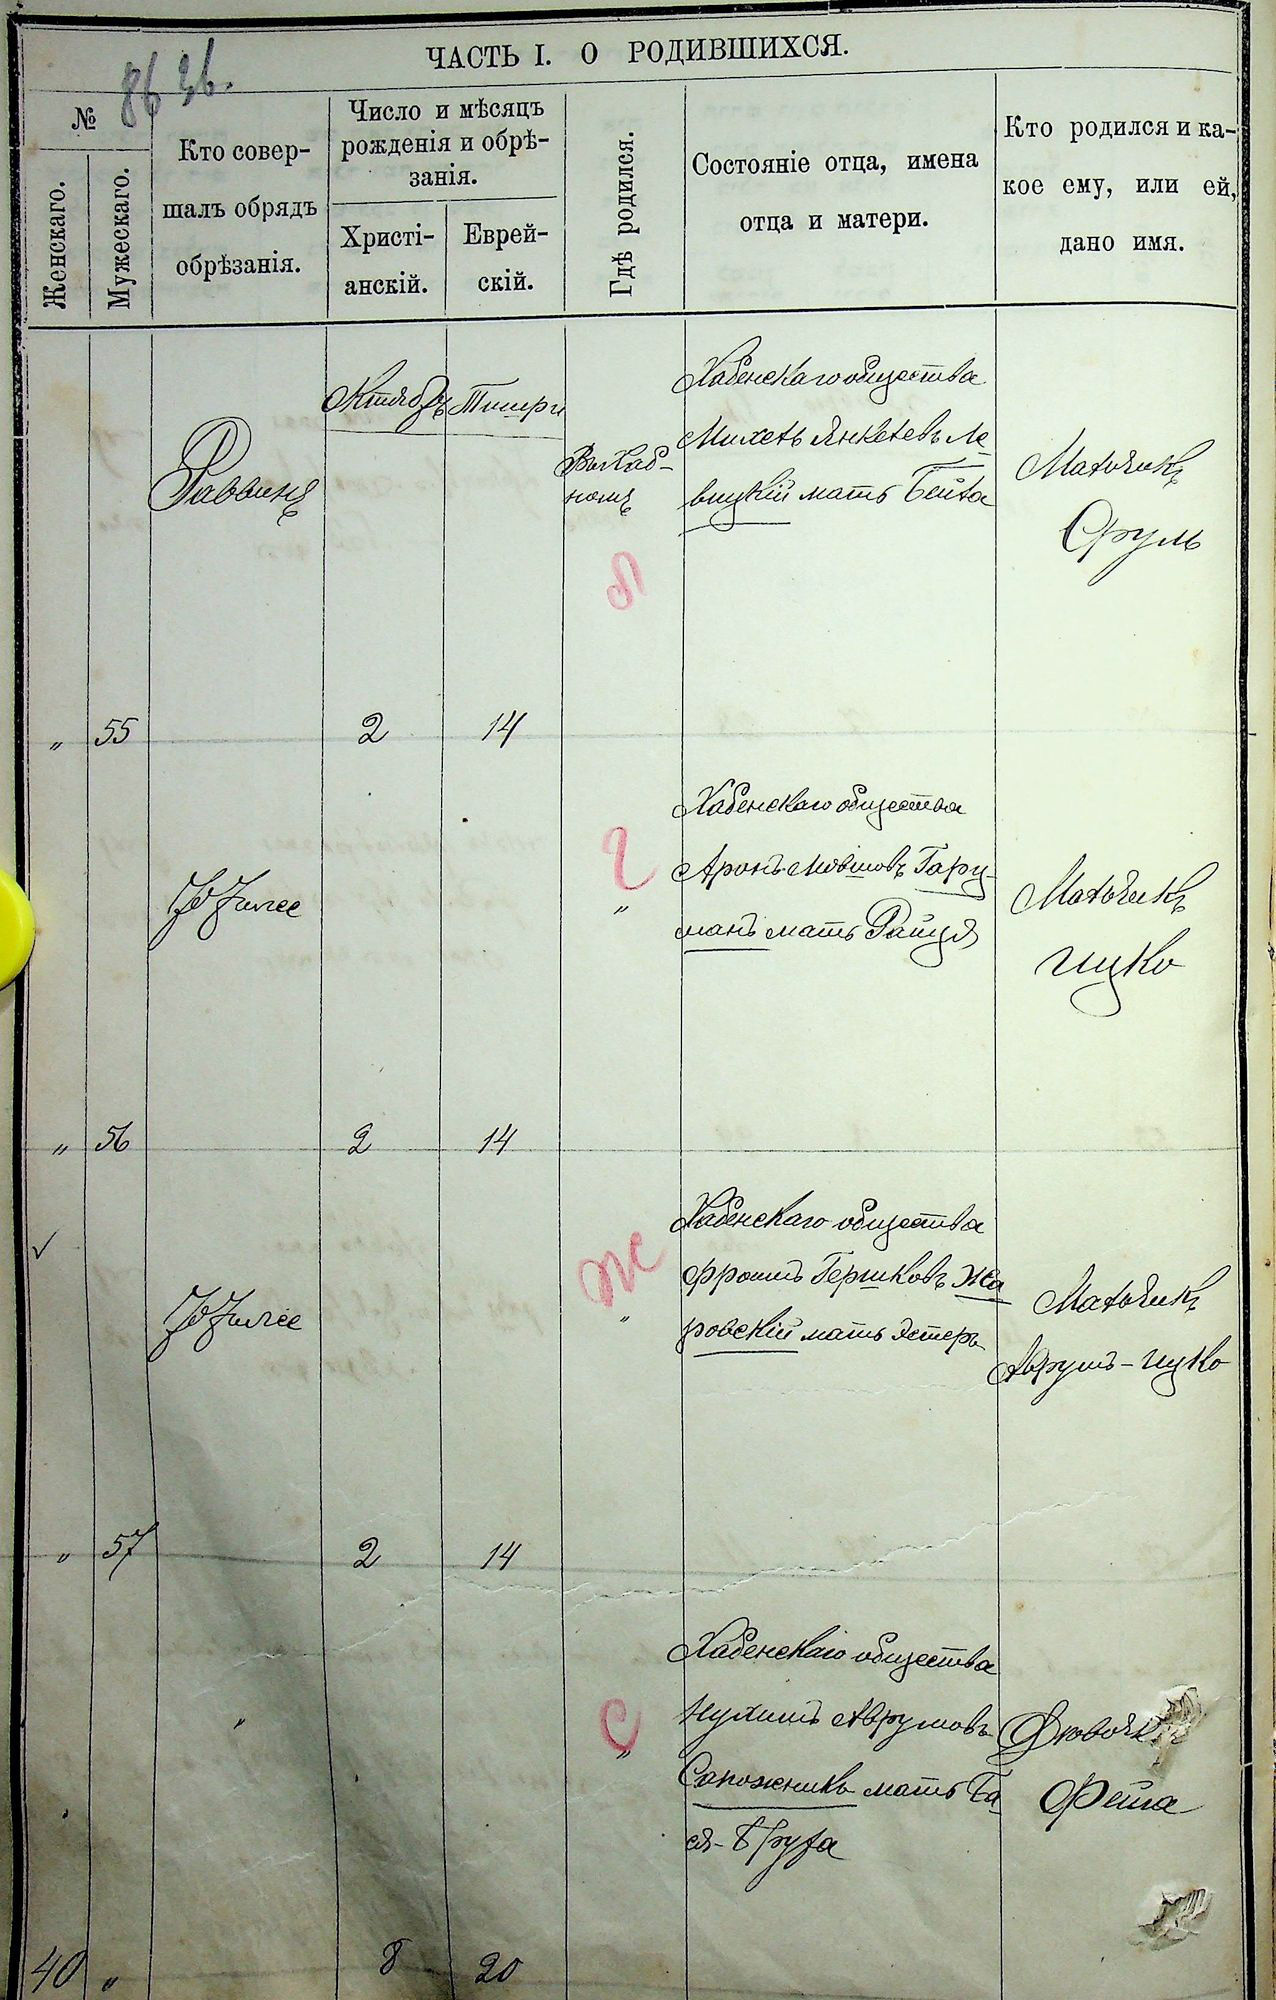 86 36.
ЧАСТЬ I. О РОДИВШИХСЯ.
№
Женскаго.
Мужескаго.
Кто совер-
шалъ обрядъ
обрѣзанія.
Число и мѣсяцъ
рожденія и обрѣ-
занія.
Христі-
анскій.
Еврей-
скій.
Гдѣ родился.
Состояніе отца, имена
отца и матери.
Кто родился и ка-
кое ему, или ей,
дано имя.
Октябрь Тишри
Раввинъ
Въ Хаб-
номъ
Хабенскаго общества
Михель Янкелевъ Ле
вицкій мать Бейла
Мальчикъ
Сруль
" 55 2 14
Хабенскаго общества
Аронъ Мовшовъ
манъ мать Райця
Мальчикъ
Ицко
"
" 56 2 14
Хабенскаго общества
Фроимъ Гершковъ Жа
ровскій мать Эстеръ
Мальчикъ
Аврумъ-Ицко
"
" 57 2 14
Хабенскаго общества
Нухимъ Аврумовъ
Сапожникъ мать Ба
ся-Фруза
Фейга
"
"
40 " 8 20